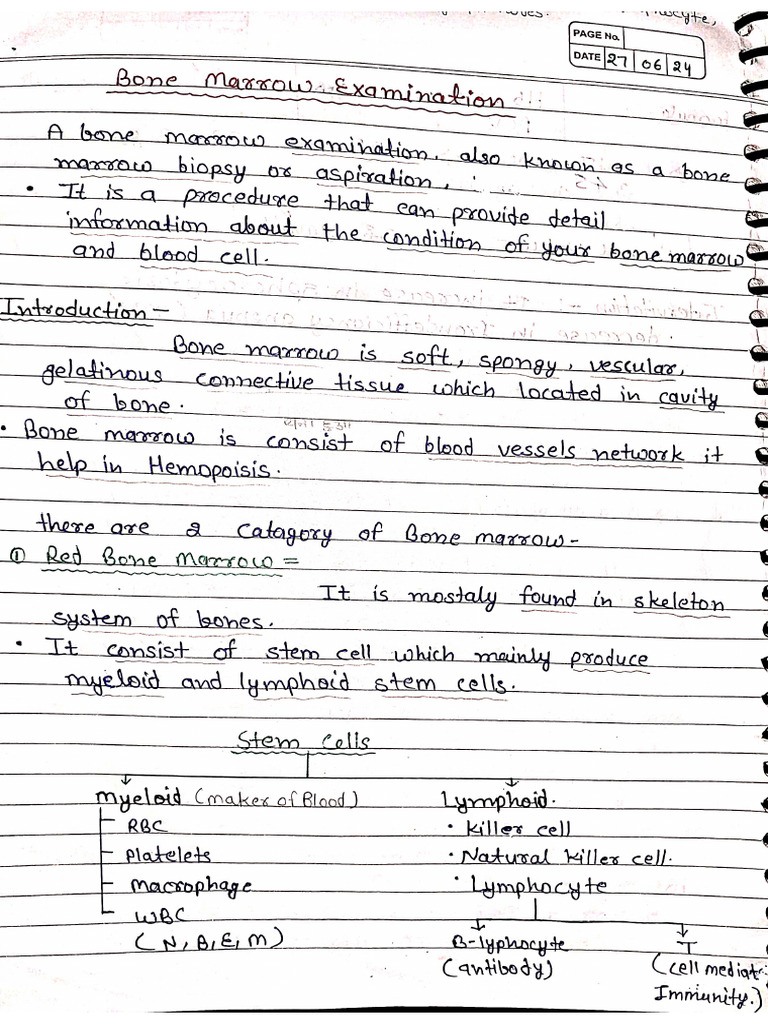 PAGE No.
DATE 27 06 24
Bone Marrow Examination
A bone marrow examination, also known as a bone
marrow biopsy or aspiration,
• It is a procedure that can provide detail
information about the condition of your bone marrow
and blood cell.
Introduction –
Bone marrow is soft, spongy, vescular,
gelatinous connective tissue which located in cavity
of bone.
बना हुआ
• Bone marrow is consist of blood vessels network it
help in Hemopoisis.
there are 2 catagory of Bone marrow-
① Red Bone Marrow =
It is mostaly found in skeleton
system of bones.
• It consist of stem cell which mainly produce
myeloid and lymphoid stem cells.
Stem cells
Myeloid (maker of Blood) Lymphoid.
RBC • Killer cell
Platelets • Natural killer cell.
Macrophage • Lymphocyte
WBC
(N, B, E, M) B-lyphocyte T
(antibody) (cell mediat
Immunity.)